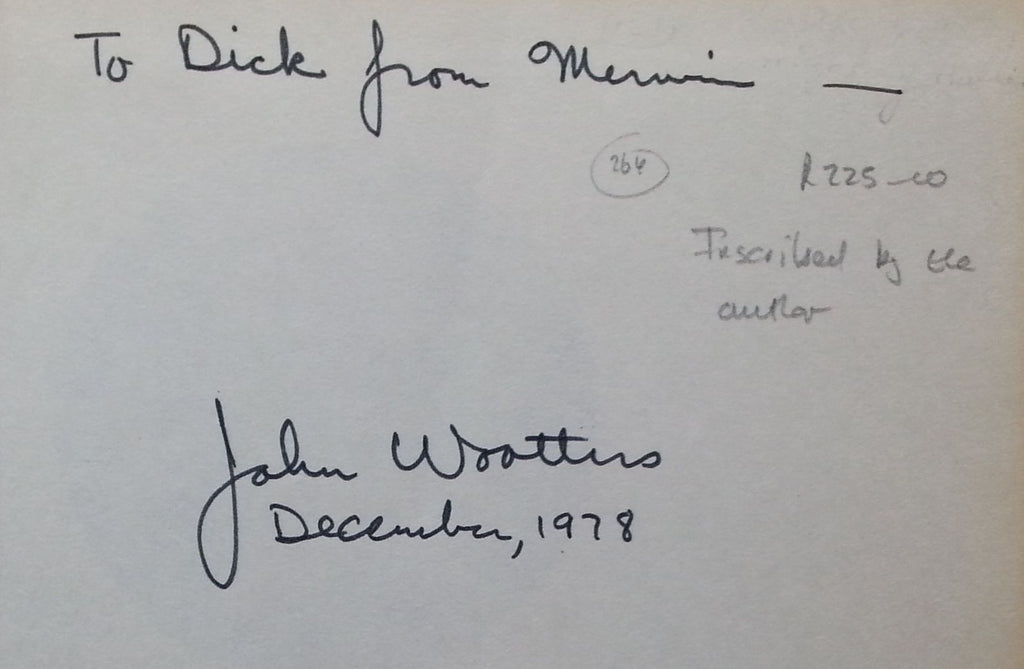 To Dick from Merwin —
264
R225-00
Inscribed by the
author
John Wootters
December, 1978